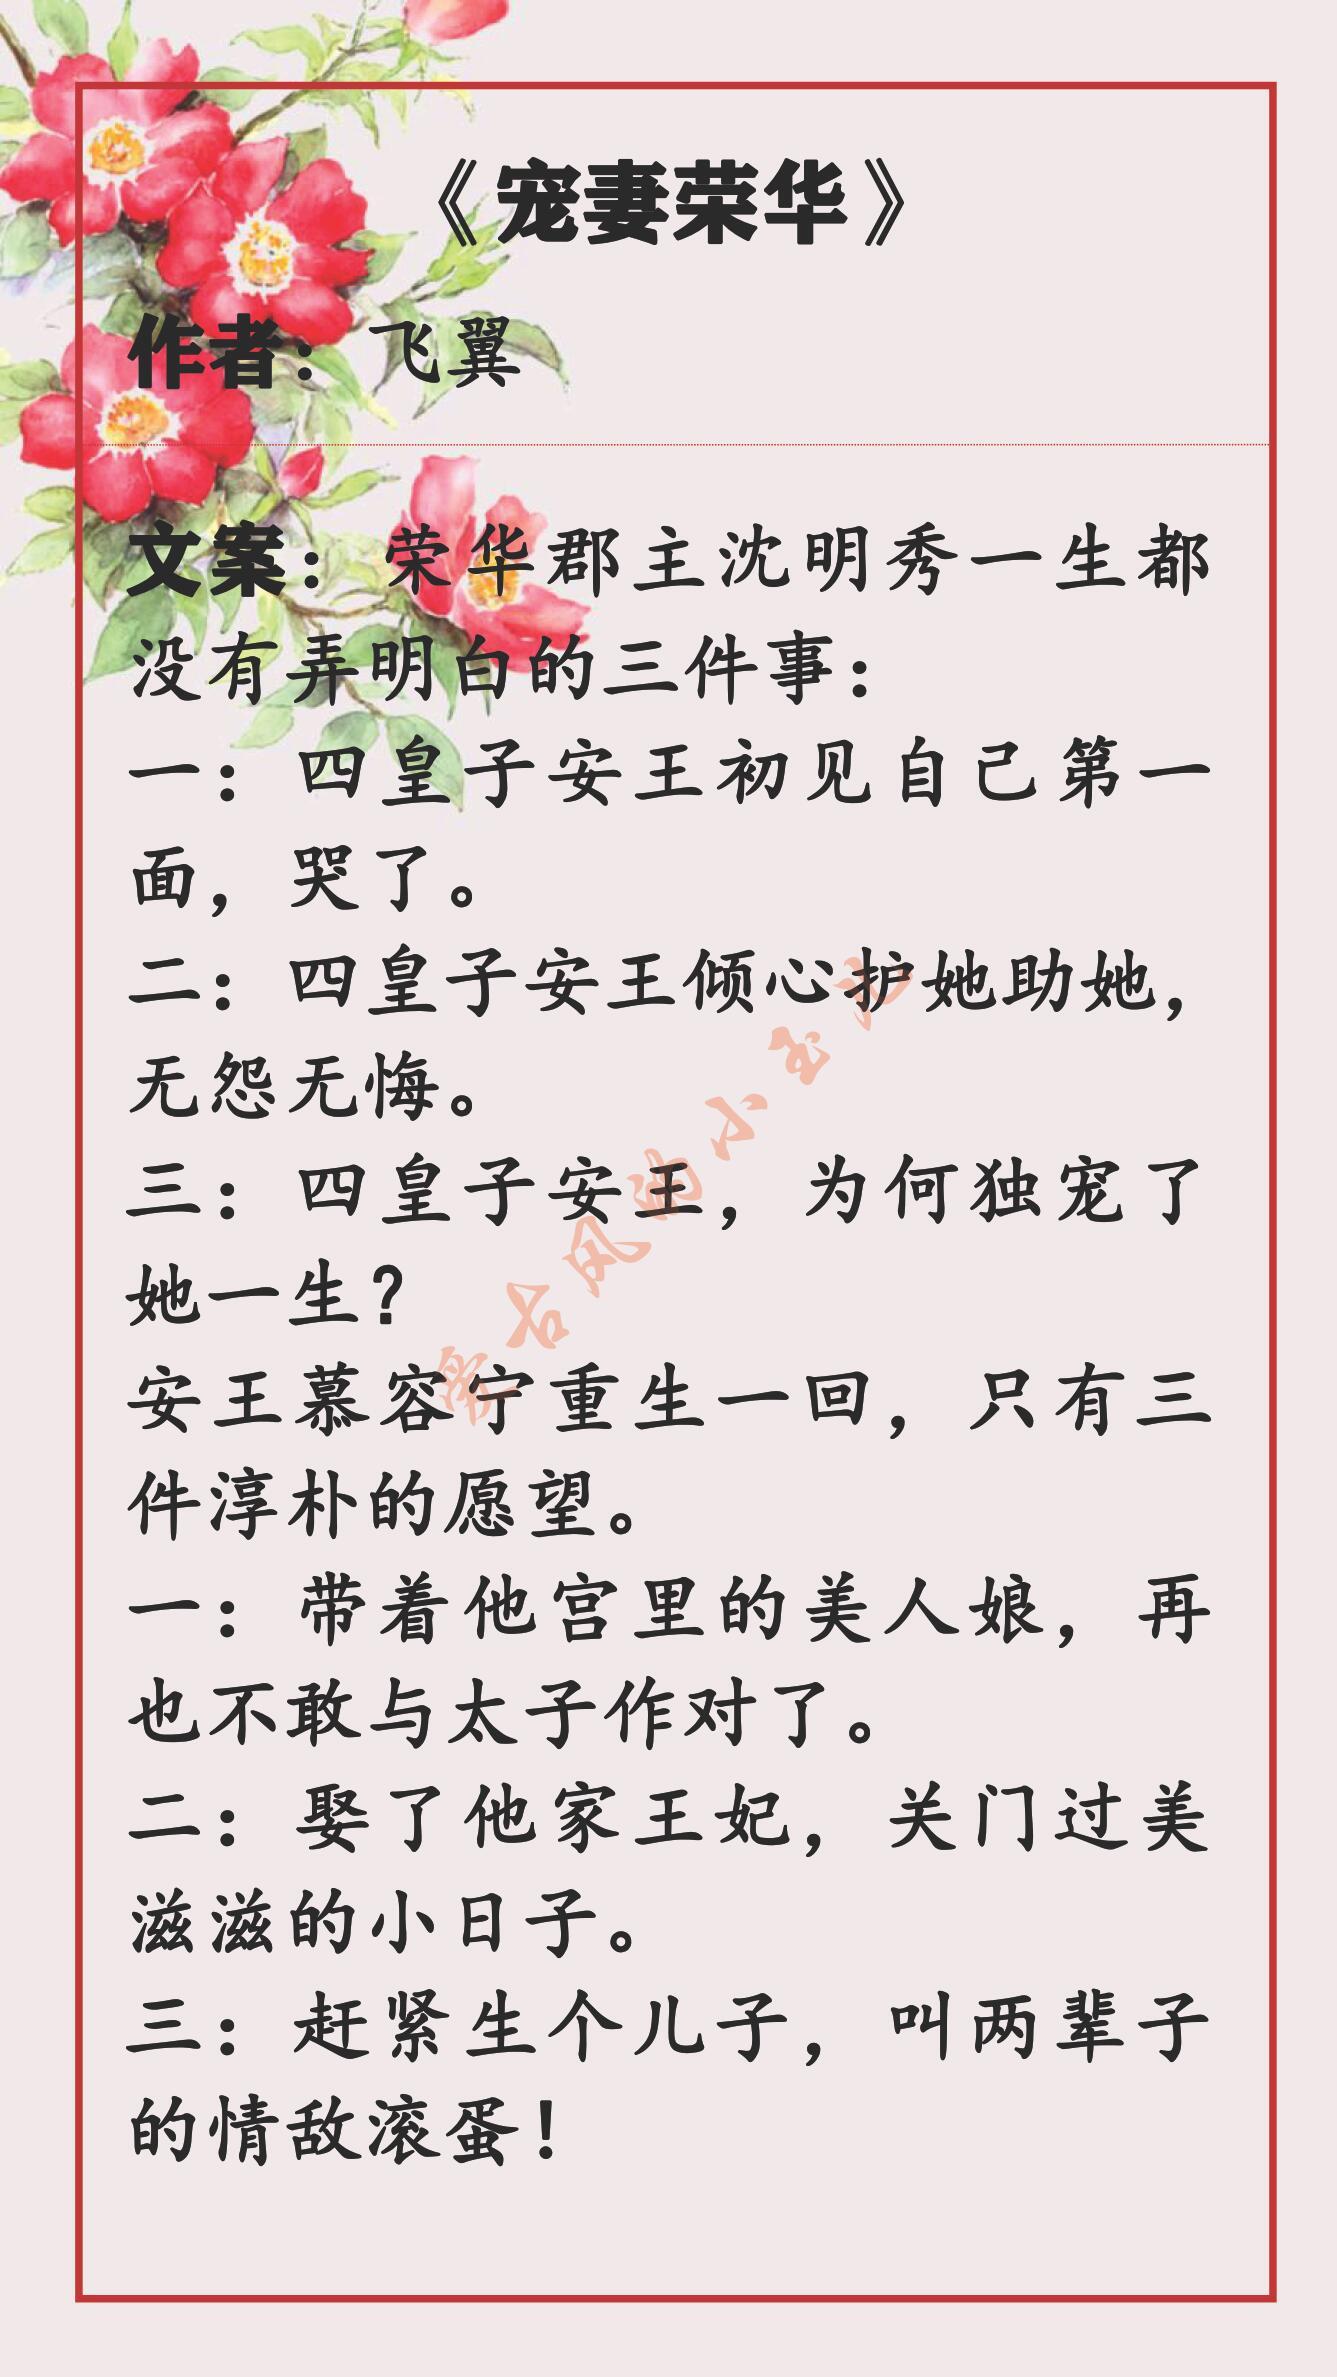 《宠妻荣华》
作者：飞翼
文案：荣华郡主沈明秀一生都
没有弄明白的三件事：
一：四皇子安王初见自己第一
面，哭了。
二：四皇子安王倾心护她助她，
无怨无悔。
三：四皇子安王，为何独宠了
她一生？
安王慕容宁重生一回，只有三
件淳朴的愿望。
一：带着他宫里的美人娘，再
也不敢与太子作对了。
二：娶了他家王妃，关门过美
滋滋的小日子。
三：赶紧生个儿子，叫两辈子
的情敌滚蛋！
古风的小